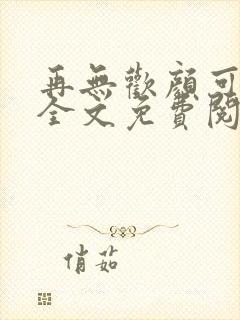 再無歡顏可
全文免費閱
俏茹